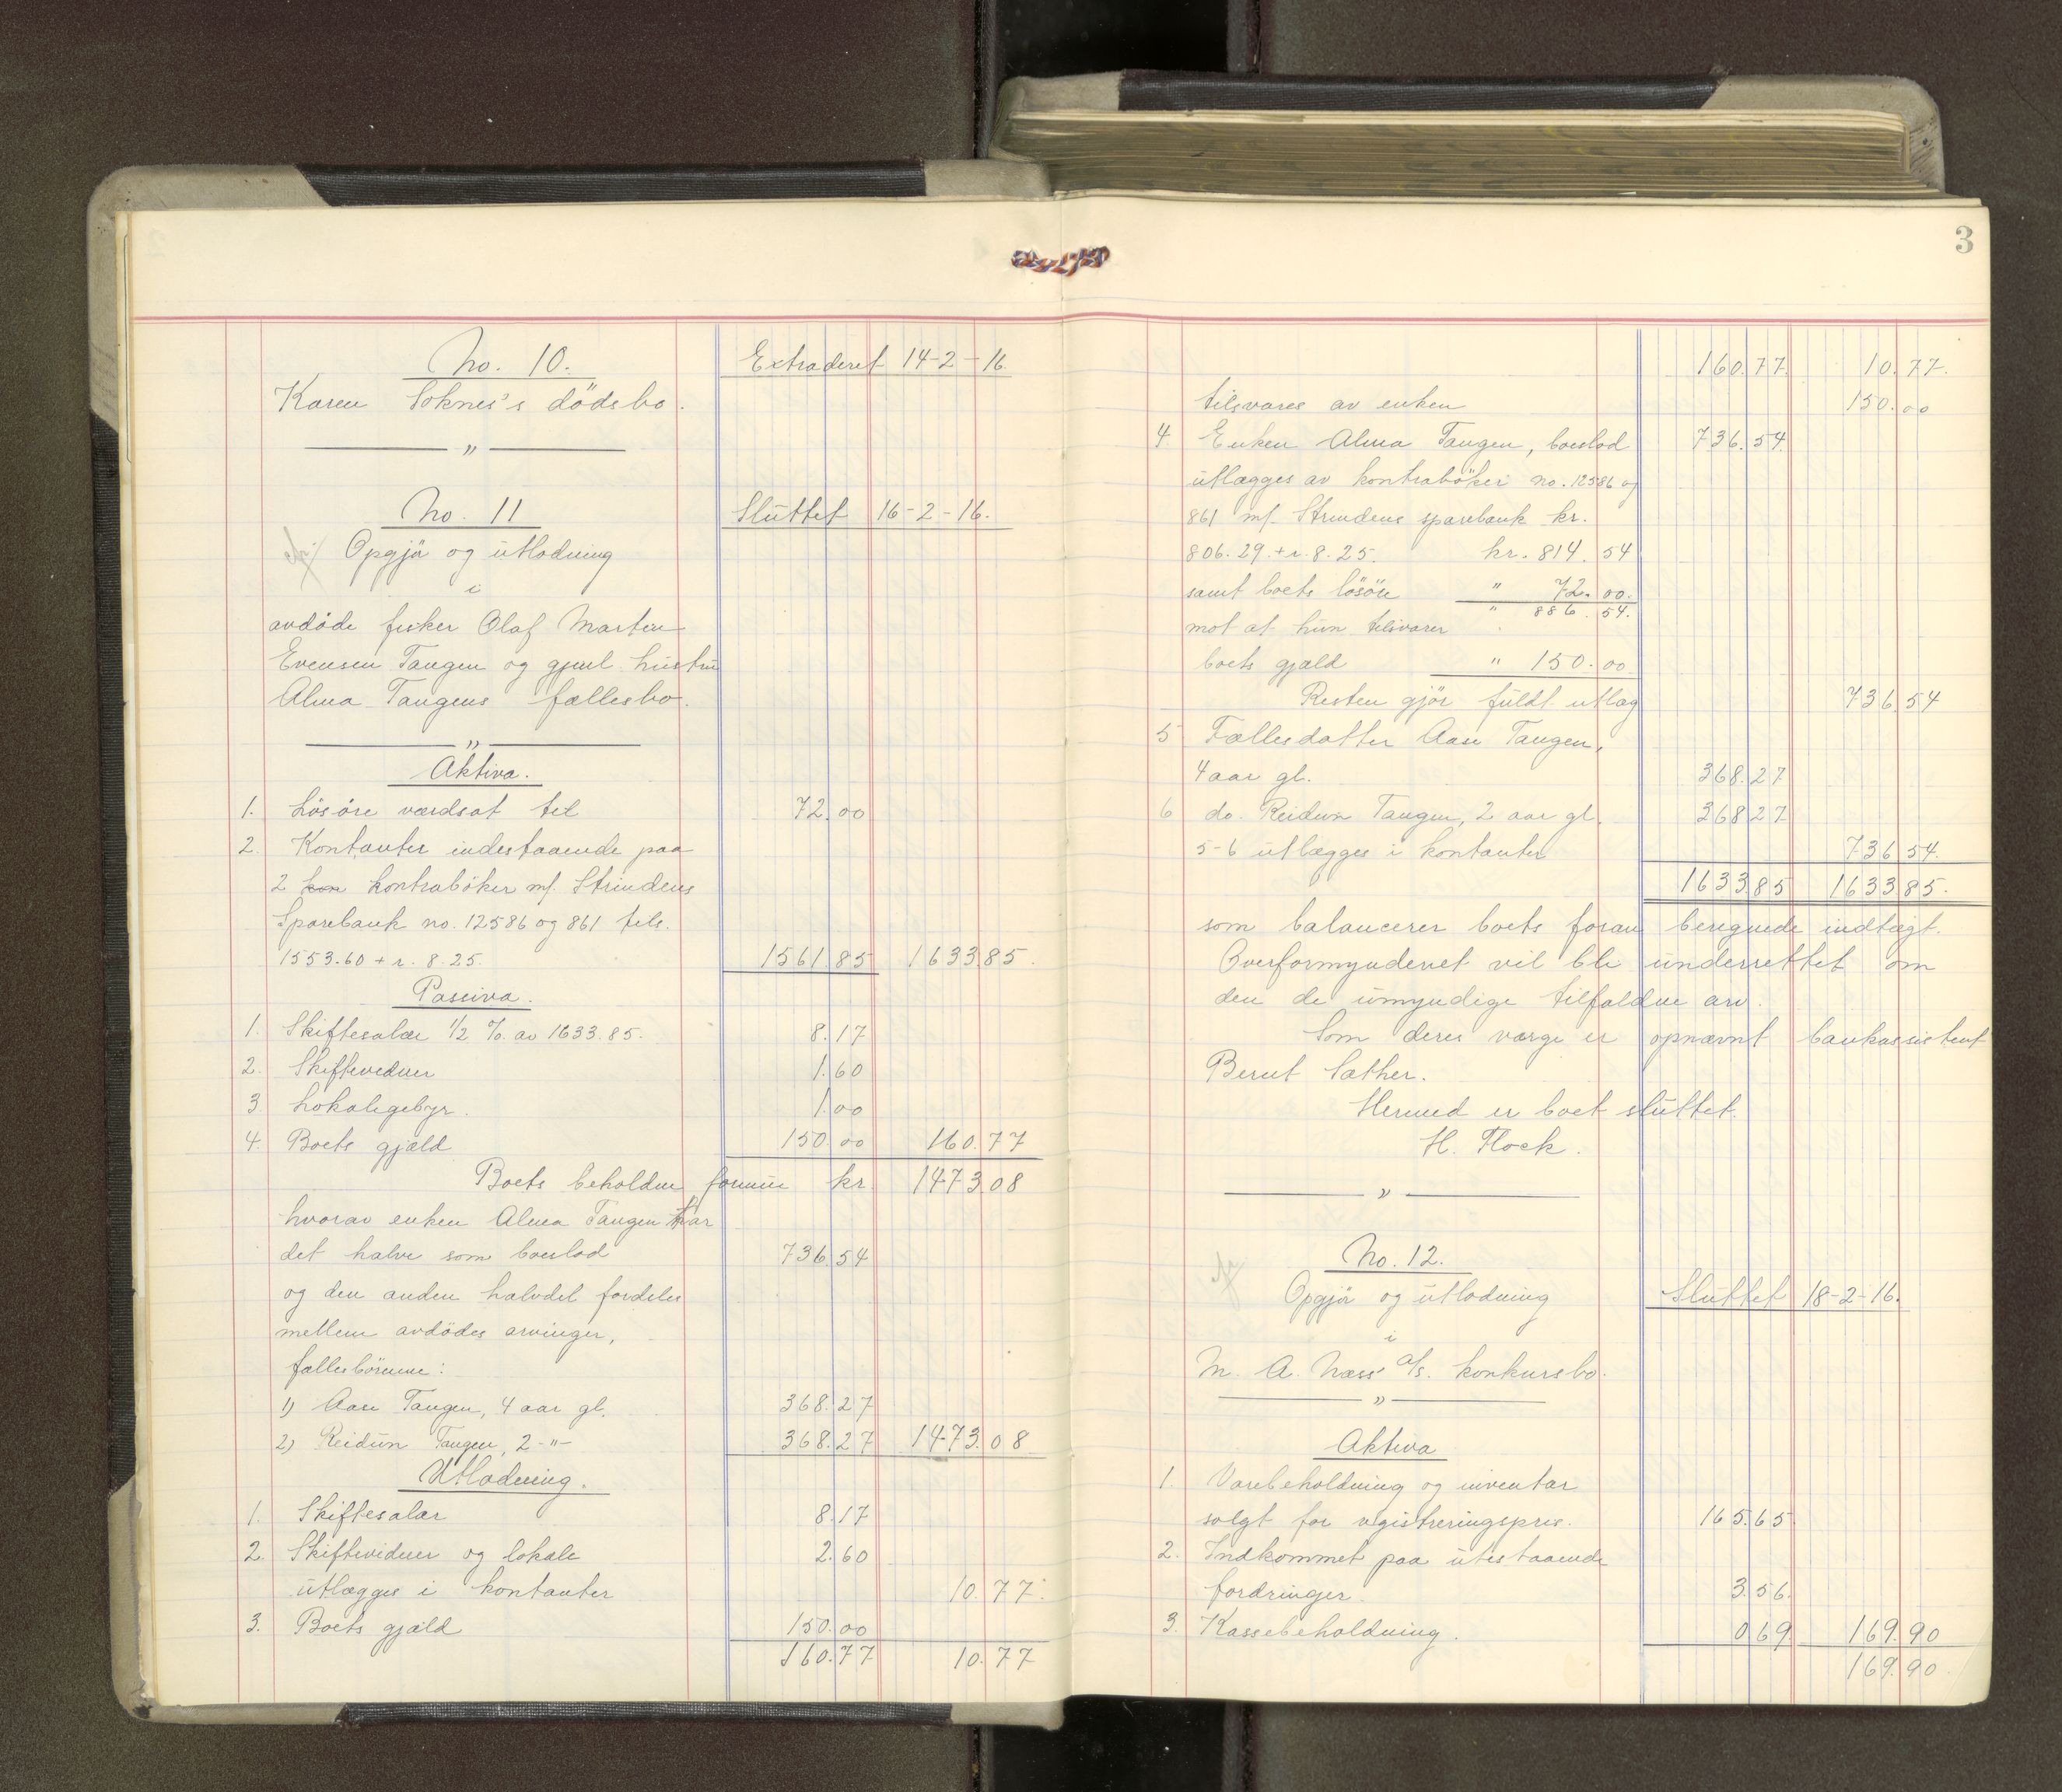 No. 10.
Extraderet 14-2-16.
Karen Soknes's dödsbo.
— " —
No. 11
Sluttet 16-2-16.
Opgjör og utlodning
i
avdöde fisker Olaf Martin
Evensen Tangen og gjenl. hustru
Alma Tangens fællesbo.
— " —
Aktiva.
1. Lösöre værdsat til 72.00
2. Kontanter indestaaende paa
2 kontraböker m/. Strindens
Sparebank no. 12586 og 861 tils.
1553.60 + r. 8.25. 1561.85 1633.85.
Passiva.
1. Skiftesalær 1/2 % av 1633.85. 8.17
2. Skiftevidner 1.60
3. Lokalegebyr. 1.00
4. Boets gjæld 150.00 160.77
Boets beholdne formue kr 1473.08
hvorav enken Alma Tangen har
det halve som boeslod 736.54
og den anden halvdel fordeles
mellem avdödes arvinger,
fællesbörnene:
1) Aase Tangen, 4 aar gl. 368.27
2) Reidun Tangen, 2 -"- 368.27 1473.08
Utlodning.
1. Skiftesalær 8.17
2. Skiftevidner og lokale 2.60
utlægges i kontanter 10.77.
3. Boets gjæld 150.00
160.77 10.77
3
160.77 10.77.
tilsvares av enken 150.00
4 Enken Alma Tangen, boeslod 736.54.
utlægges av kontraböker no. 12586 og
861 m/. Strindens sparebank kr.
806.29. + r. 8.25. kr. 814.54
samt boets lösöre " 72.00.
" 886.54.
mot at hun tilsvarer
boets gjæld " 150.00
Resten gjör fuldt utlæg 736.54
5 Fællesdatter Aase Tangen,
4 aar gl. 368.27
6 do. Reidun Tangen, 2 aar gl. 368.27
5-6 utlægges i kontanter 736.54.
1633.85 1633.85.
som balancerer boets foran beregnede indtægt.
Overformynderiet vil bli underrettet om
den de umyndige tilfaldne arv.
Som deres værge er opnævnt bankassistent
Bernt Sæther.
Hermed er boet sluttet.
H. Flock.
— " —
No. 12.
Opgjör og utlodning
Sluttet 18-2-16.
i
M. A. Næss' A/s. konkursbo.
— " —
Aktiva
1. Varebeholdning og inventar
solgt for registreringspris. 165.65
2. Indkommet paa utestaaende
fordringer 3.56.
3. Kassebeholdning. 0.69 169.90
169.90